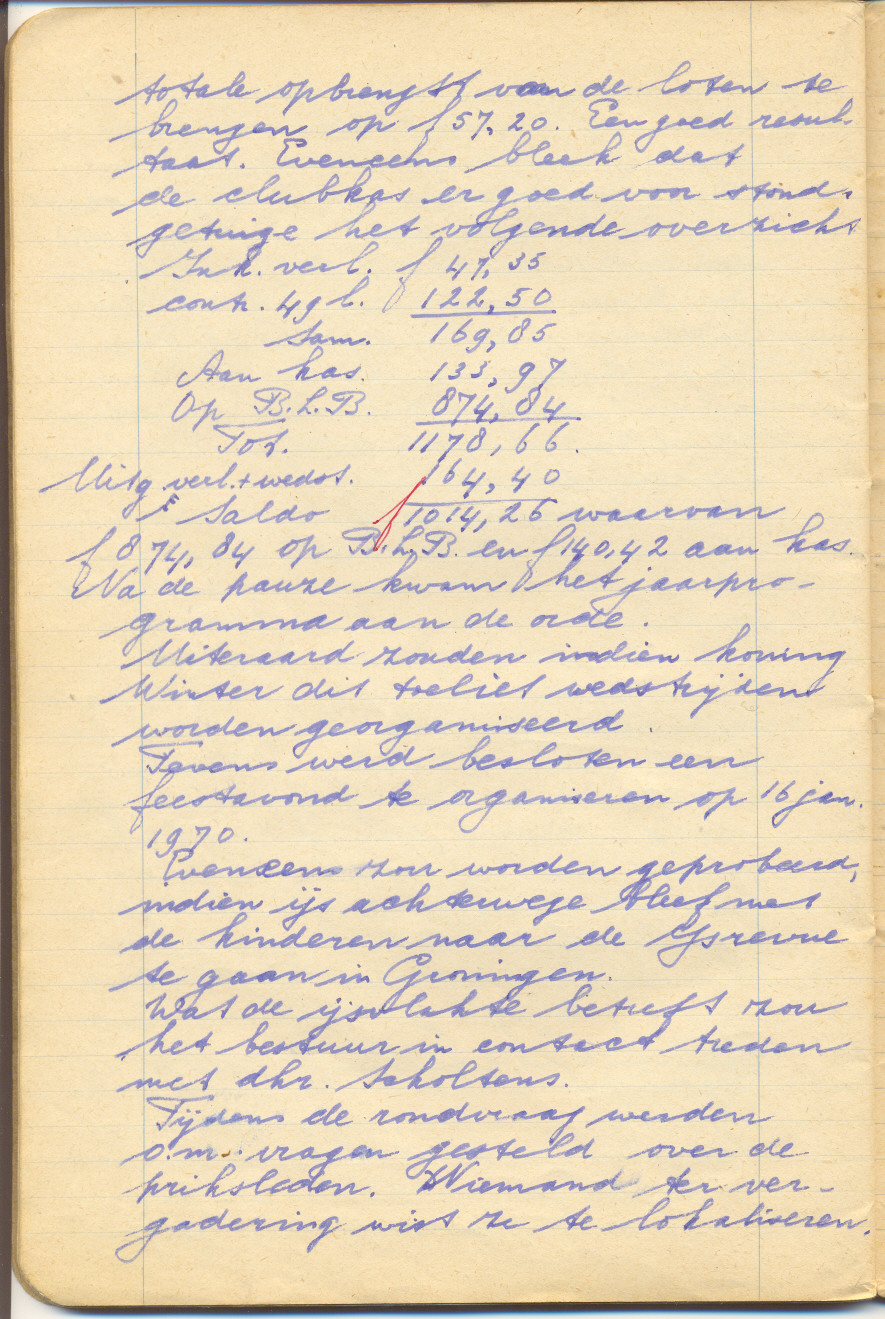 totale opbrengst van de loten te
brengen op f 57,20. Een goed resul-
taat. Eveneens bleek dat
de clubkas er goed voor stond,
getuige het volgende overzicht
Ink. verl. f 47,35
contr. 49 l. 122,50
Sam. 169,85
Aan kas. 133,97
Op B.L.B. 874,84
Tot. 1178,66.
Uitg. verl. + wedst. 164,40
Saldo f 1014,26 waarvan
f 874,84 op B.L.B. en f 140,42 aan kas.
Na de pauze kwam het jaarpro-
gramma aan de orde.
Uiteraard zouden indien koning
Winter dit toeliet wedstrijden
worden georganiseerd.
Tevens werd besloten een
feestavond te organiseren op 16 jan.
1970.
Eveneens zou worden geprobeerd,
indien ijs achterwege bleef met
de kinderen naar de IJsrevue
te gaan in Groningen.
Wat de ijsvlakte betreft zou
het bestuur in contact treden
met dhr. Scholtens.
Tijdens de rondvraag werden
o.m. vragen gesteld over de
priksleden. Niemand ter ver-
gadering wist ze te lokaliseren.